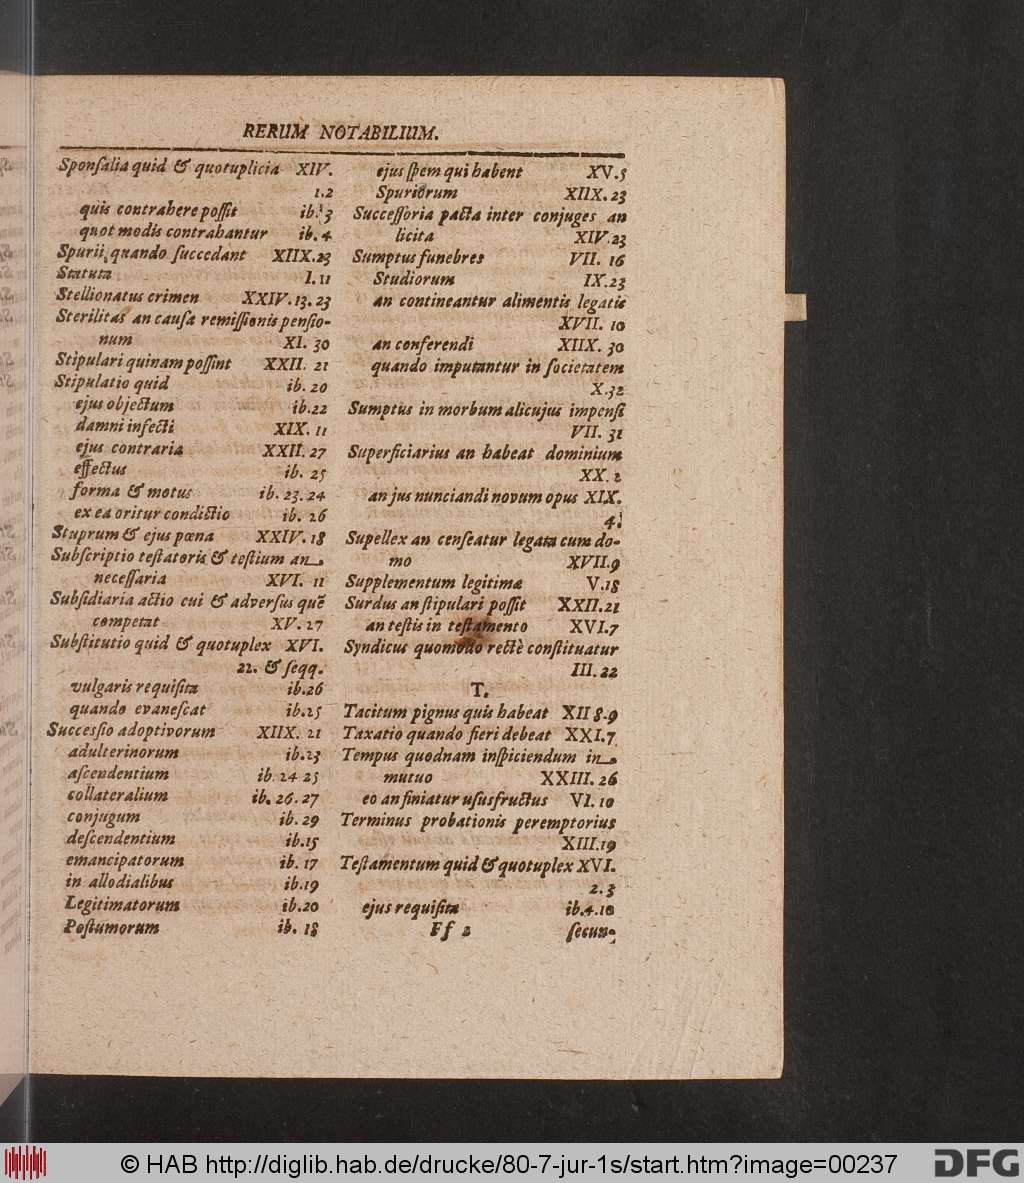 RERUM NOTABILIUM.
Sponſalia quid & quotuplicia XIV.
1.2
quis contrahere poſſit ib. 3
quot modis contrahantur ib. 4
Spurii quando ſuccedant XIIX.23
Statuta I.11
Stellionatus crimen XXIV.13.23
Sterilitas an cauſa remiſſionis penſio-
num XI. 30
Stipulari quinam poſſint XXII. 21
Stipulatio quid ib. 20
ejus objectum ib.22
damni infecti XIX. 11
ejus contraria XXII. 27
effectus ib. 25
forma & motus ib. 23.24
ex ea oritur condictio ib. 26
Stuprum & ejus pœna XXIV.18
Subſcriptio teſtatoris & teſtium an
neceſſaria XVI. 11
Subſidiaria actio cui & adverſus quē
competat XV. 27
Subſtitutio quid & quotuplex XVI.
22. & ſeqq.
vulgaris requiſita ib.26
quando evaneſcat ib.25
Succeſſio adoptivorum XIIX. 21
adulterinorum ib.23
aſcendentium ib. 24 25
collateralium ib. 26.27
conjugum ib. 29
deſcendentium ib.15
emancipatorum ib. 17
in allodialibus ib.19
Legitimatorum ib.20
Poſtumorum ib. 18
ejus ſpem qui habent XV.5
Spuriorum XIIX.23
Succeſſoria pacta inter conjuges an
licita XIV.23
Sumptus funebres VII. 16
Studiorum IX.23
an contineantur alimentis legatis
XVII. 10
an conferendi XIIX. 30
quando imputantur in ſocietatem
X.32
Sumptus in morbum alicujus impenſi
VII. 31
Superficiarius an habeat dominium
XX. 2
an jus nunciandi novum opus XIX.
4.
Supellex an cenſeatur legata cum do-
mo XVII.9
Supplementum legitimæ V.18
Surdus an ſtipulari poſſit XXII.21
an teſtis in teſtamento XVI.7
Syndicus quomodo rectè conſtituatur
III. 22
T.
Tacitum pignus quis habeat XII 8.9
Taxatio quando fieri debeat XXI.7
Tempus quodnam inſpiciendum in
mutuo XXIII. 26
eo an finiatur uſusfructus VI. 10
Terminus probationis peremptorius
XIII.19
Teſtamentum quid & quotuplex XVI.
2.3
ejus requiſita ib.4.10
Ff 2 ſecun-
© HAB http://diglib.hab.de/drucke/80-7-jur-1s/start.htm?image=00237
DFG